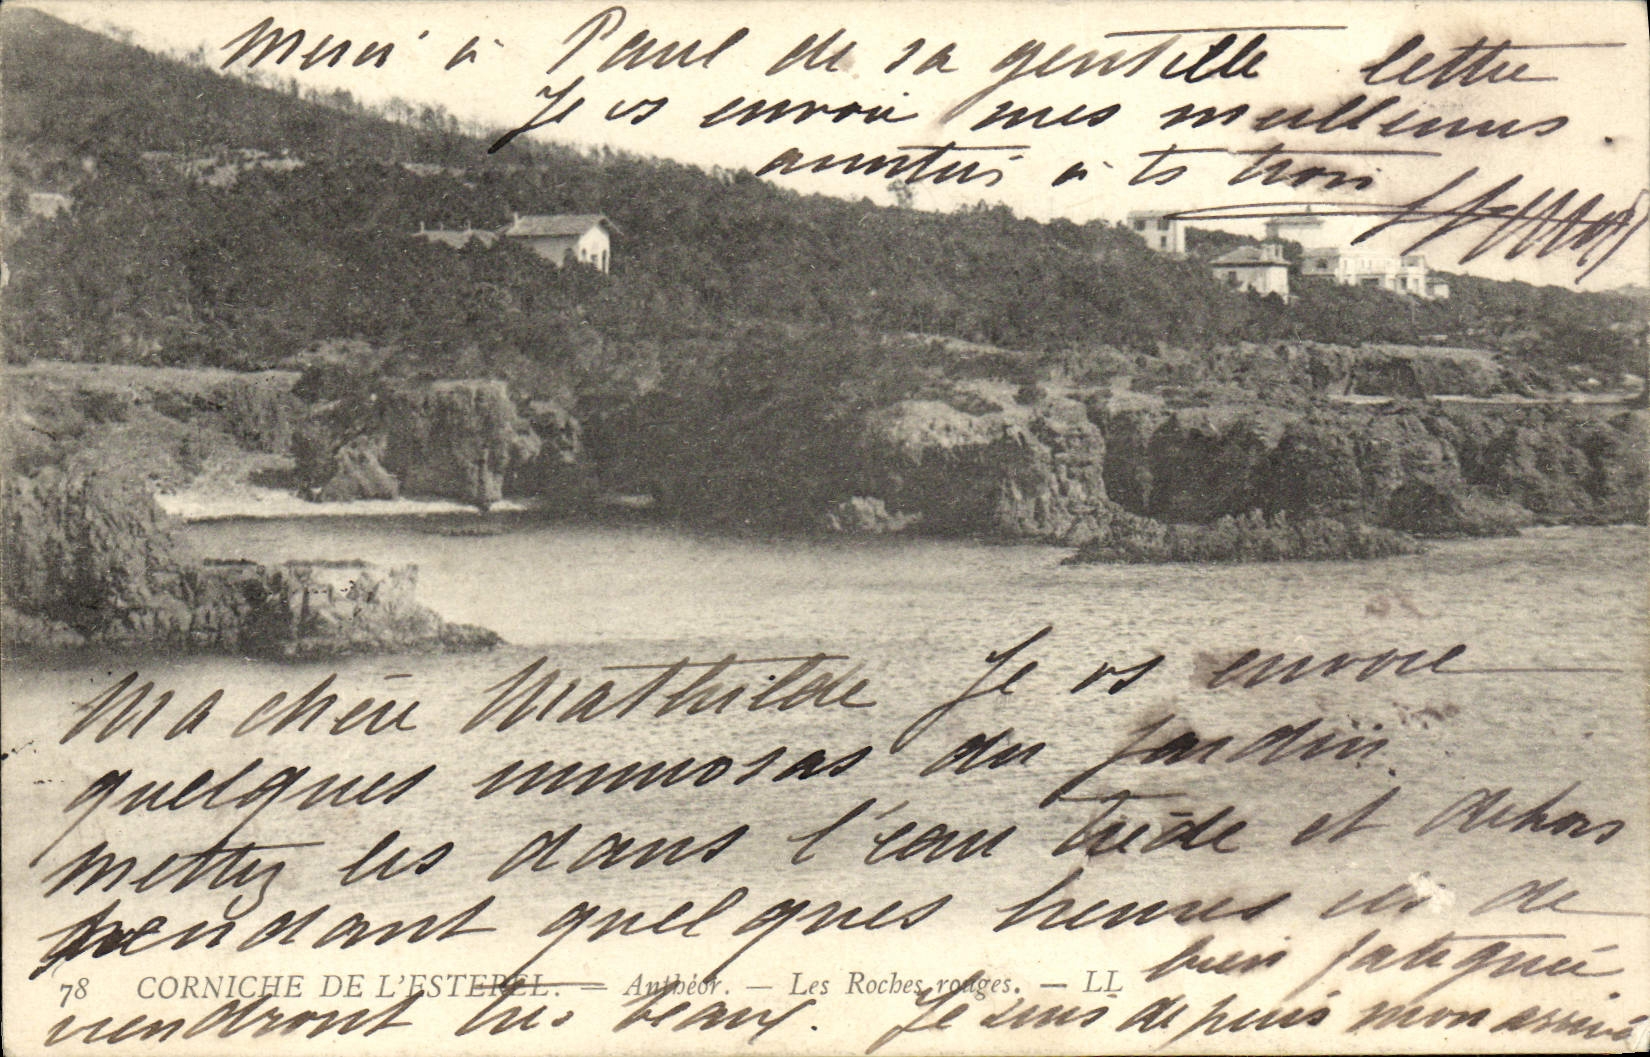 Merci à Paul de sa gentille lettre
Je vs envoie mes meilleures
amitiés à ts trois
Ma chère Mathilde Je vs envoie
quelques mimosas du jardin.
mettez les dans l'eau tiède et dehors
pendant quelques heures ils de
bien fatiguée
78 CORNICHE DE L'ESTEREL. — Anthéor. — Les Roches rouges. — LL
viendront très beaux. Je suis depuis mon arrivée